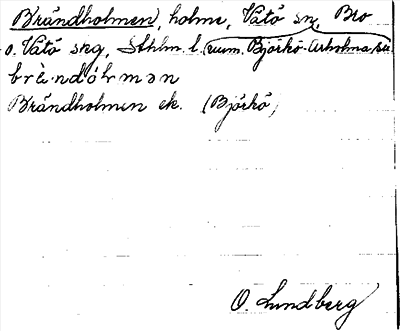 Brändholmen, holme, Vätö sn, Bro
o. Vätö skg, Sthlm l. (num. Björkö-Arholma sn)
Brändholmen ek. (Björkö)
O. Lundberg